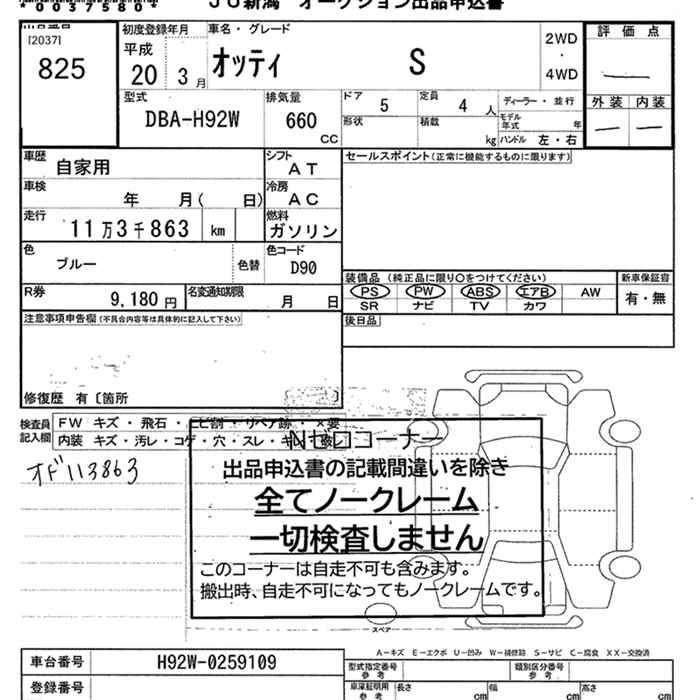 *0037580*
JU新潟 オークション出品申込書
出品番号
[2037]
825
初度登録年月
平成
20 3月
車名・グレード
オッティ S
2WD
・
4WD
評価点
外装 内装
型式
DBA-H92W
排気量
660
CC
ドア 5
定員 4 人
形状
積載 kg
ディーラー・並行
モデル年式 年
ハンドル 左・右
車歴
自家用
シフト
AT
セールスポイント(正常に機能するものに限ります)
車検
年 月( 日)
冷房
AC
走行
11万3千863 km
燃料
ガソリン
色
ブルー
色替
色コード
D90
装備品 (純正品に限り○をつけてください)
新車保証書
PS PW ABS エアB AW
有・無
SR ナビ TV カワ
R券
9,180円
名変通知期限
月 日
後日品
注意事項申告欄(不具合内容等は具体的に記入して下さい)
修復歴 有〔箇所 〕
検査員
記入欄
FW キズ・飛石・ヒビ割・リペア跡・×要
内装 キズ・汚レ・コゲ・穴・スレ・キレ・破レ
オド113863
Nゼロコーナー
出品申込書の記載間違いを除き
全てノークレーム
一切検査しません
このコーナーは自走不可も含みます。
搬出時、自走不可になってもノークレームです。
スペア
A-キズ E-エクボ U-凹み W-補修跡 S-サビ C-腐食 XX-交換済
車台番号
H92W-0259109
型式指定番号
参考
類別区分番号
参考
登録番号
車庫証明用
参考
長さ cm
幅 cm
高さ cm